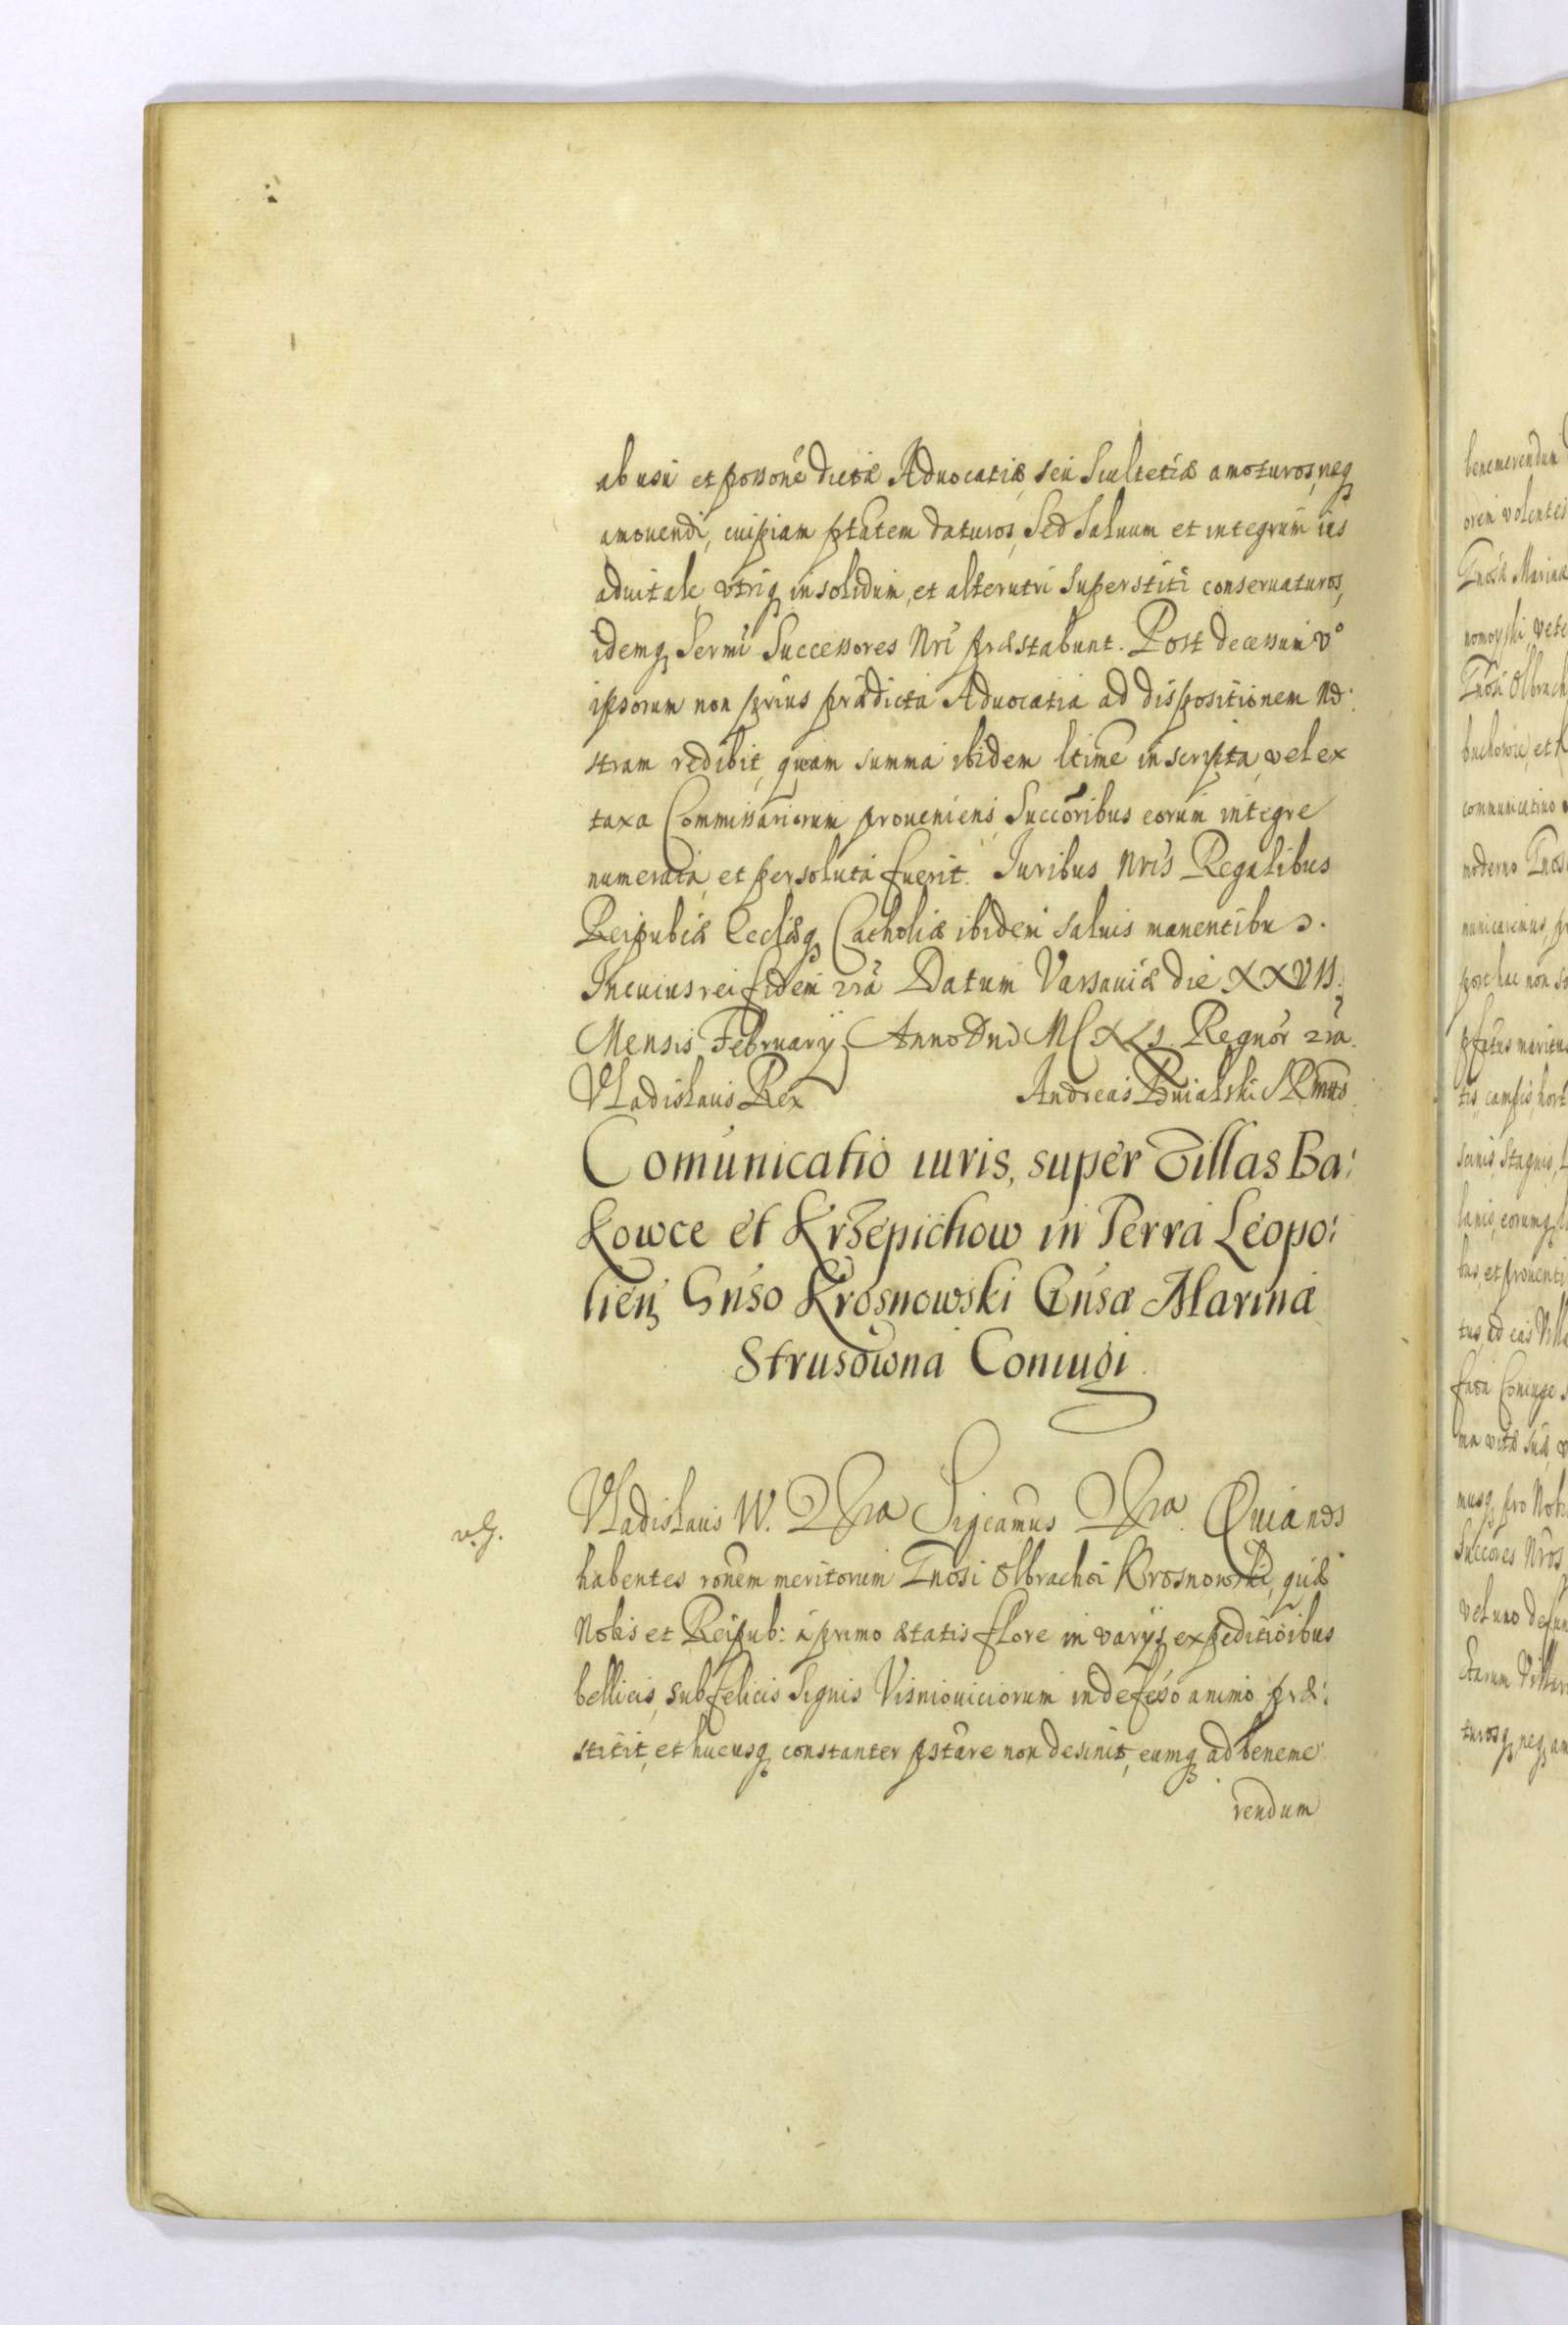 ab usu et possoné dictæ Aduocatiæ, seu Scultetiæ amoturos, neq
amouendi, cuipiam ptatem daturos, Sed Saluum et integrum ius
aduitale vtriq in solidum, et alterutri Superstiti conseruaturos,
idemq Sermi Successores Nri præstabunt. Post decessum vº
ipsorum non prius prædicta Aduocatia ad dispositionem No:
stram redibit, quam summa ibidem ltime inscripta, vel ex
taxa Commissariorum proueniens Succoribus eorum integre
numerata, et persoluta fuerit. Iuribus Nris Regalibus
Reipubcæ Ecclæq Catholcæ ibidem saluis manentibus.
In cuius rei fidem 2ra Datum Varsauiæ die XXVII.
Mensis February Anno Dni MDCXLI. Regnor 2ra.
Vladislaus Rex Andreas
Comunicatio iuris, super Villas Ba:
kowce et Krzepichow in Terra Leopo:
lien Gnso Krosnowski Gnsæ Marinæ
Strusowna Coniugi
v.g.
Vladislaus IV. 2ra Sigcamus 2ra. Quia nos
habentes ronem meritorum Gnosi Olbrachci Krosnowski, quæ
Nobis et Reipub: á primo ætatis flore in varys expeditioibus
bellicis, sub felicis Signis Visniouiciorum indefeso animo præ:
stitit, et hucusq constanter pstare non desinit, eumq ad beneme:
rendum
benemerendum
orem volentes
Gnosæ Marinæ
Gnosi Olbrach
moderno Gnos
post hac non
pfatus maritus
tis, campis, hort
bus, et prouenti
tus, ad eas Villa
fata Coniuge
ma vitæ suæ
musq pro Nob
Succores Nros
vel uno defun
ctarum Villar
turosq, neq am